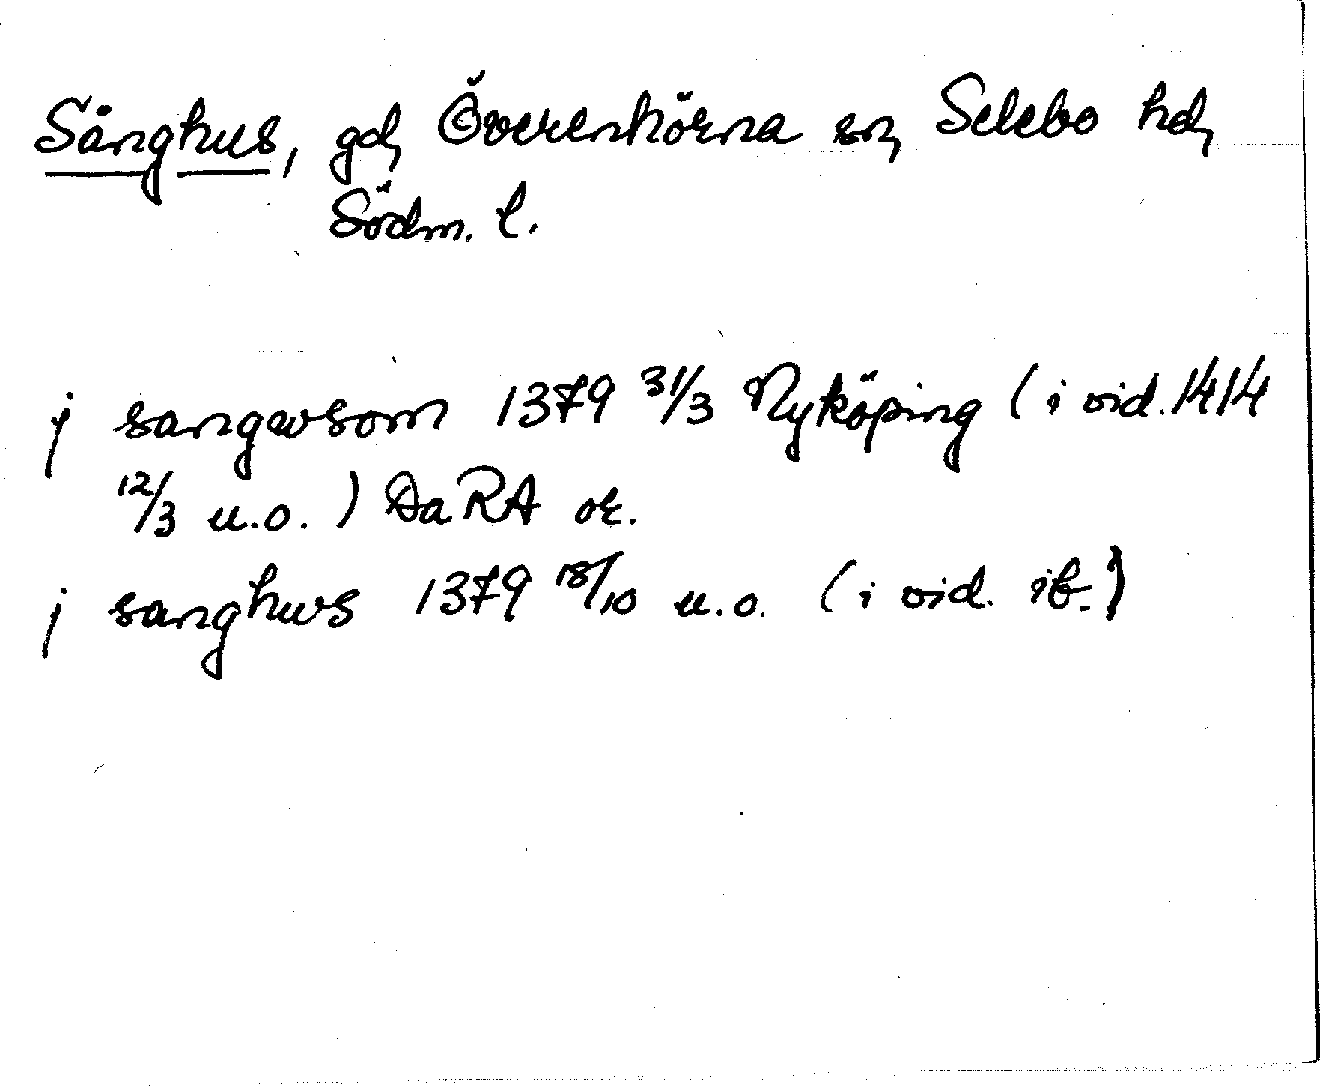 Sånghus, gd, Överenhörna sn, Selebo hd,
Södm. l.
j sangwsom 1379 31/3 Nyköping (i vid. 1414
12/3 u.o.) DaRA or.
j sanghws 1379 18/10 u.o. (i vid. ib.)